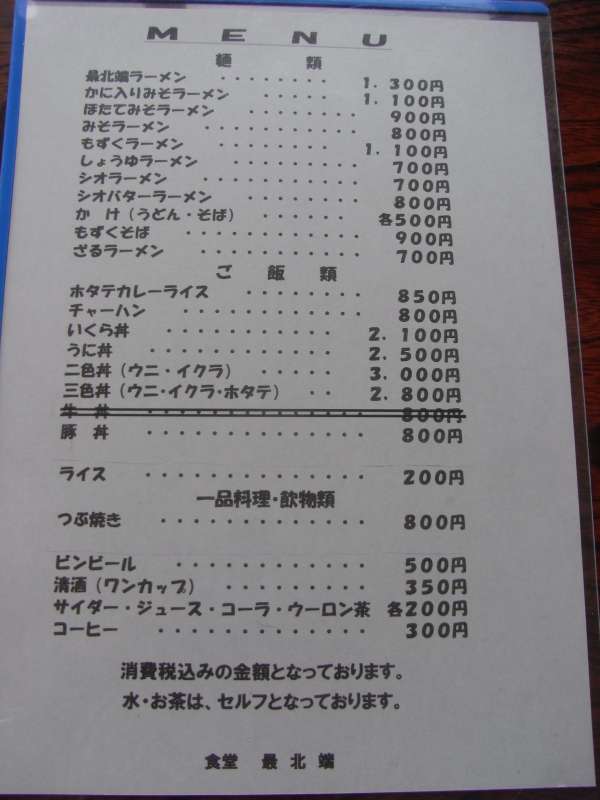 MENU
麺 類
最北端ラーメン ········ 1.300円
かに入りみそラーメン ····· 1.100円
ほたてみそラーメン ········ 900円
みそラーメン ··········· 800円
もずくラーメン ········ 1.100円
しょうゆラーメン ········· 700円
シオラーメン ··········· 700円
シオバターラーメン ········ 800円
か け（うどん・そば） ······ 各500円
もずくそば ············ 900円
ざるラーメン ··········· 700円
ご 飯 類
ホタテカレーライス ········ 850円
チャーハン ············ 800円
いくら丼 ··········· 2.100円
うに丼 ············ 2.500円
二色丼（ウニ・イクラ） ····· 3.000円
三色丼（ウニ・イクラ・ホタテ） ·· 2.800円
牛 丼 ·············· 800円
豚 丼 ·············· 800円
ライス ·············· 200円
一品料理・飲物類
つぶ焼き ············· 800円
ビンビール ············ 500円
清酒（ワンカップ） ········· 350円
サイダー・ジュース・コーラ・ウーロン茶 各200円
コーヒー ············· 300円
消費税込みの金額となっております。
水・お茶は、セルフとなっております。
食堂 最北端